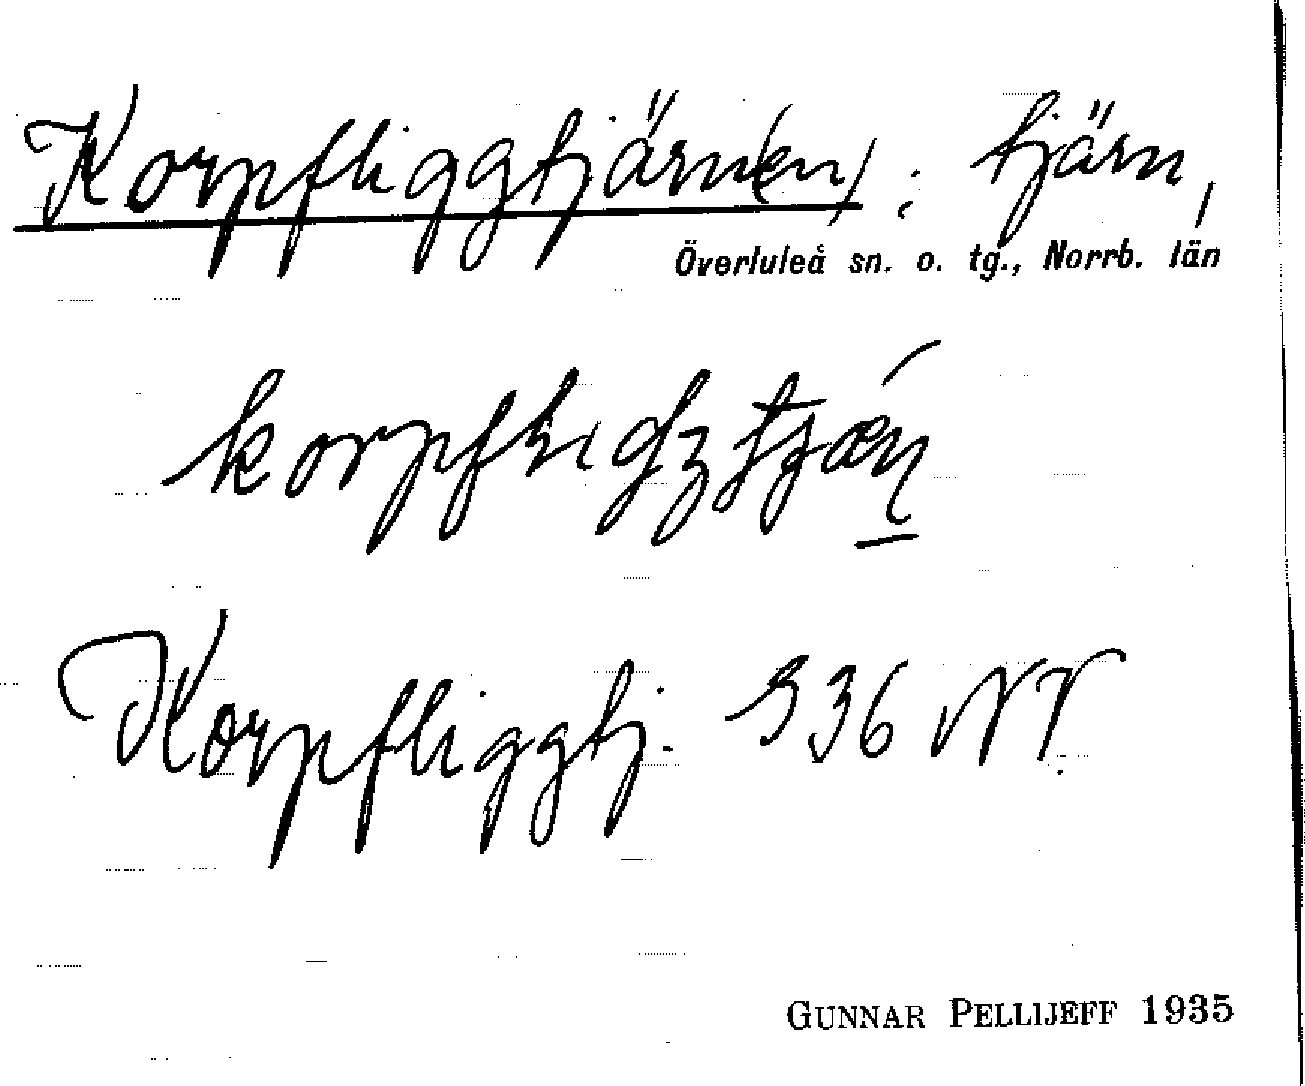 Korpfliggtjärn(en) : tjärn,
Överluleå sn. o. tg., Norrb. län
Korpfliggtj. 336 NV.
GUNNAR PELLIJEFF 1935